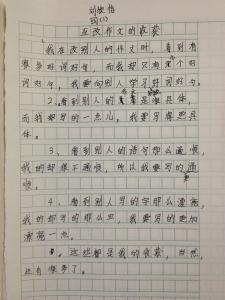 互改作文的收获
我在改别人的作文时,看到有
很多好词好句,而我却只有几个好
词好句,我要向别人学习好词好句。
2、看到别人的作文是很具体,
而我却写的一点儿,我要写得些具
体。
3、看到别人的语句那么通顺,
我的却很不通顺,所以我要写的通
顺。
4、看到别人写的字那么漂亮,
我的却写的那么丑,我要写的更加
漂亮一点。
这些都是我的收获,当然,
还有很多了。